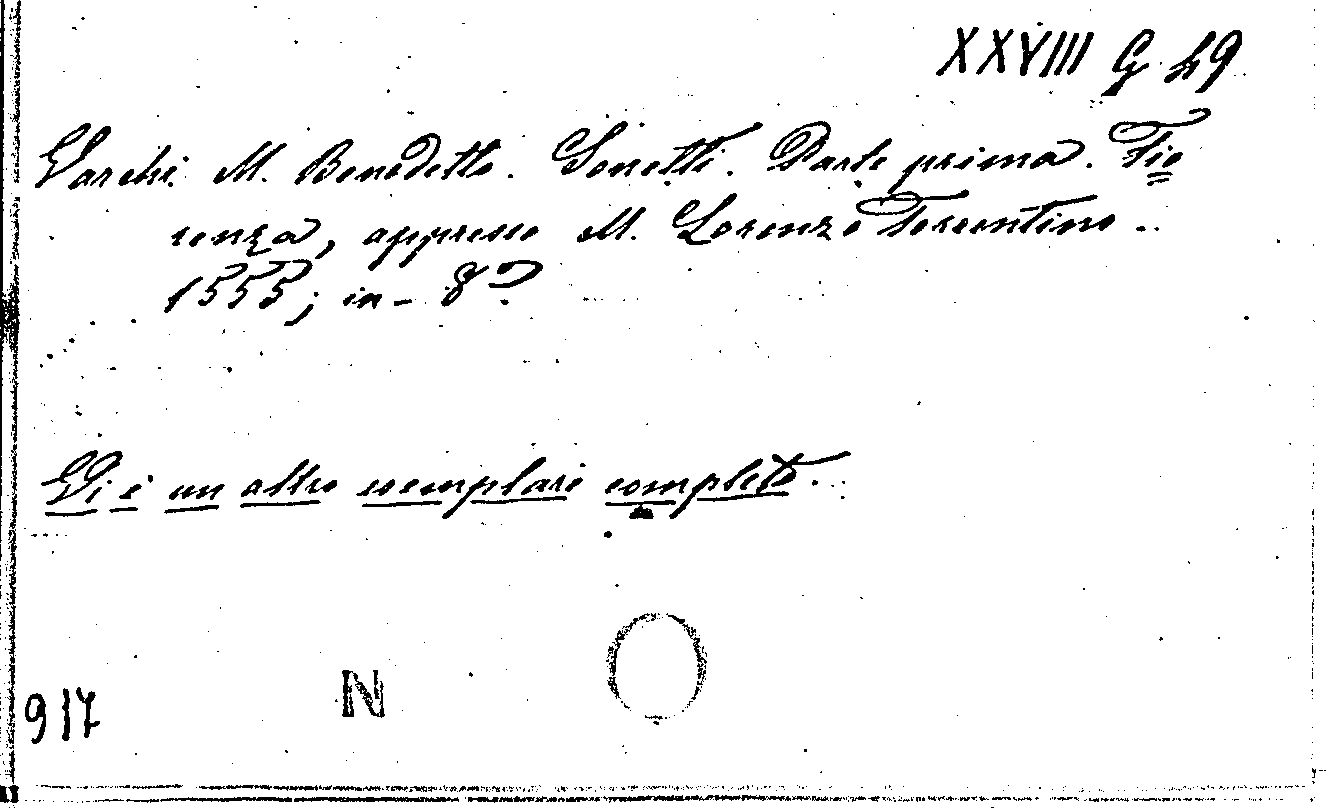 XXVIII G 49
Varchi M. Benedetto. Sonetti. Parte prima. Fio=
renza, appresso M. Lorenzo Torrentino..
1555; in-8º.
Vi è un altro esemplare completo.
N
917